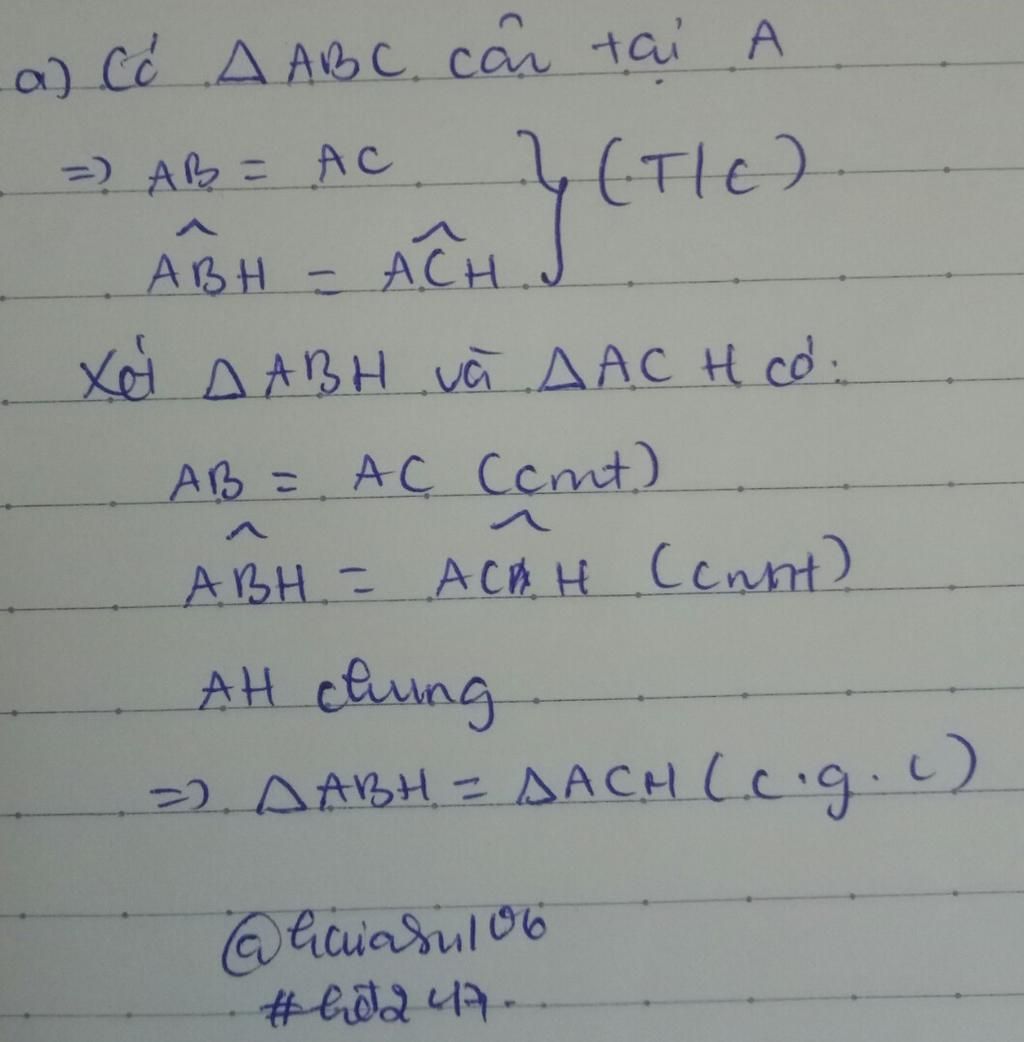 a) Có Δ ABC cân tại A
=> AB = AC } (T/c)
ABH = ACH
Xét Δ ABH và Δ ACH có:
AB = AC (cmt)
ABH = ACH (cmt)
AH chung
=> Δ ABH = Δ ACH (c.g.c)
#hđ247.